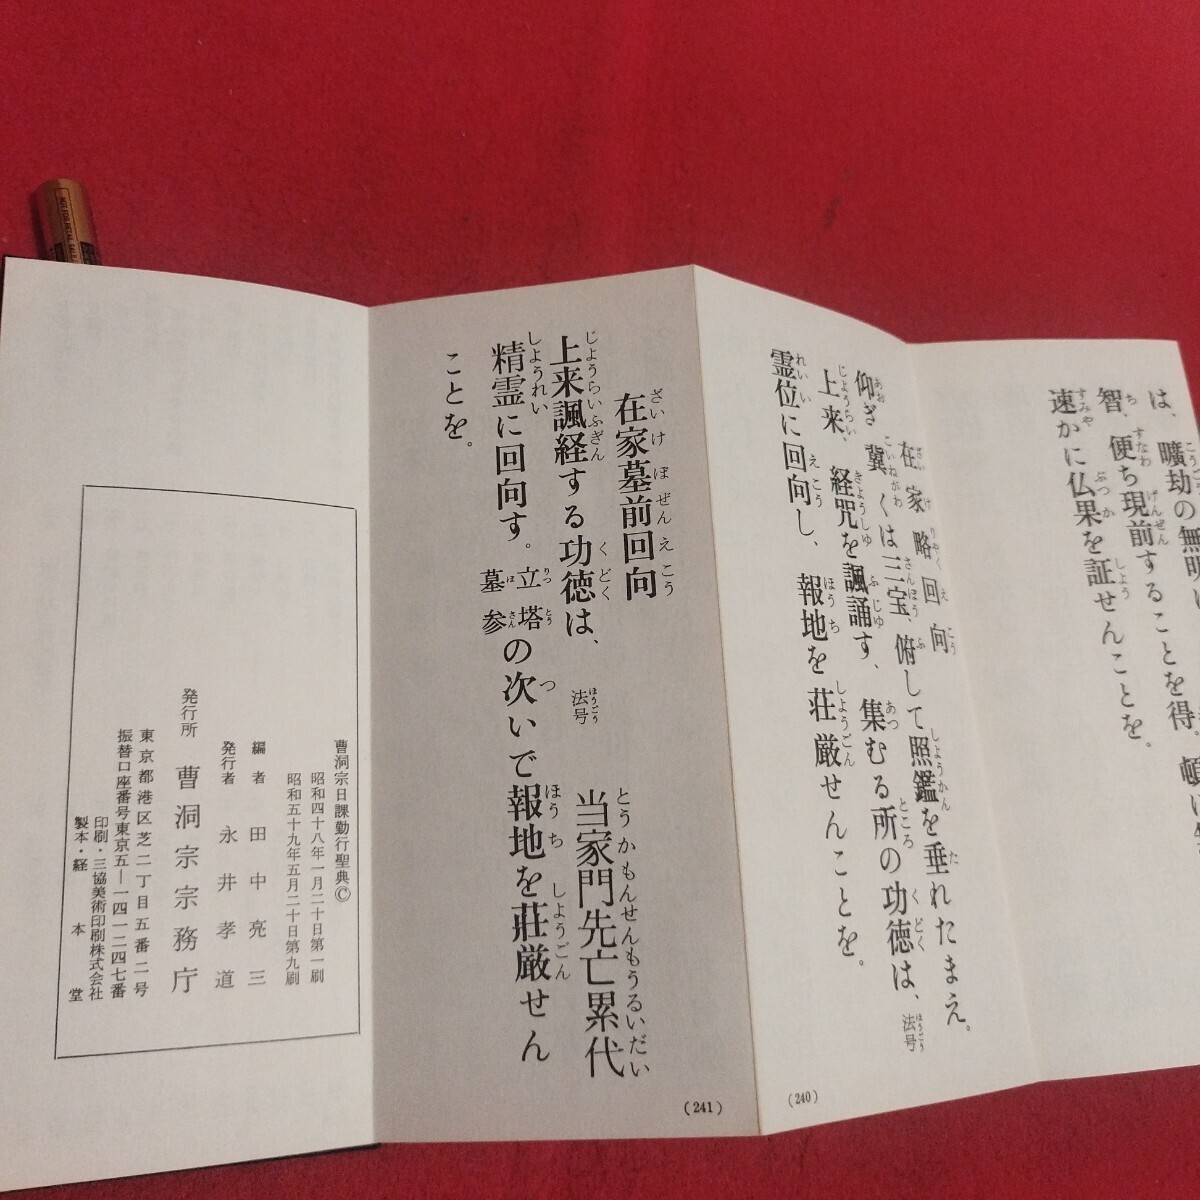 は、曠劫の無明
智、便ち現前することを得。頓に
速かに仏果を証せんことを。
在家略回向
仰ぎ冀くは三宝、俯して照鑑を垂れたまえ。
上来、経咒を諷誦す、集むる所の功徳は、法号
霊位に回向し、報地を荘厳せんことを。
(240)
在家墓前回向
上来諷経する功徳は、法号 当家門先亡累代
精霊に回向す。立塔墓参の次いで報地を荘厳せん
ことを。
(241)
曹洞宗日課勤行聖典©
昭和四十八年一月二十日第一刷
昭和五十九年五月二十日第九刷
編者 田中亮三
発行者 永井孝道
発行所 曹洞宗宗務庁
東京都港区芝二丁目五番二号
振替口座番号東京五―一四一二四七番
印刷・三協美術印刷株式会社
製本・経本堂